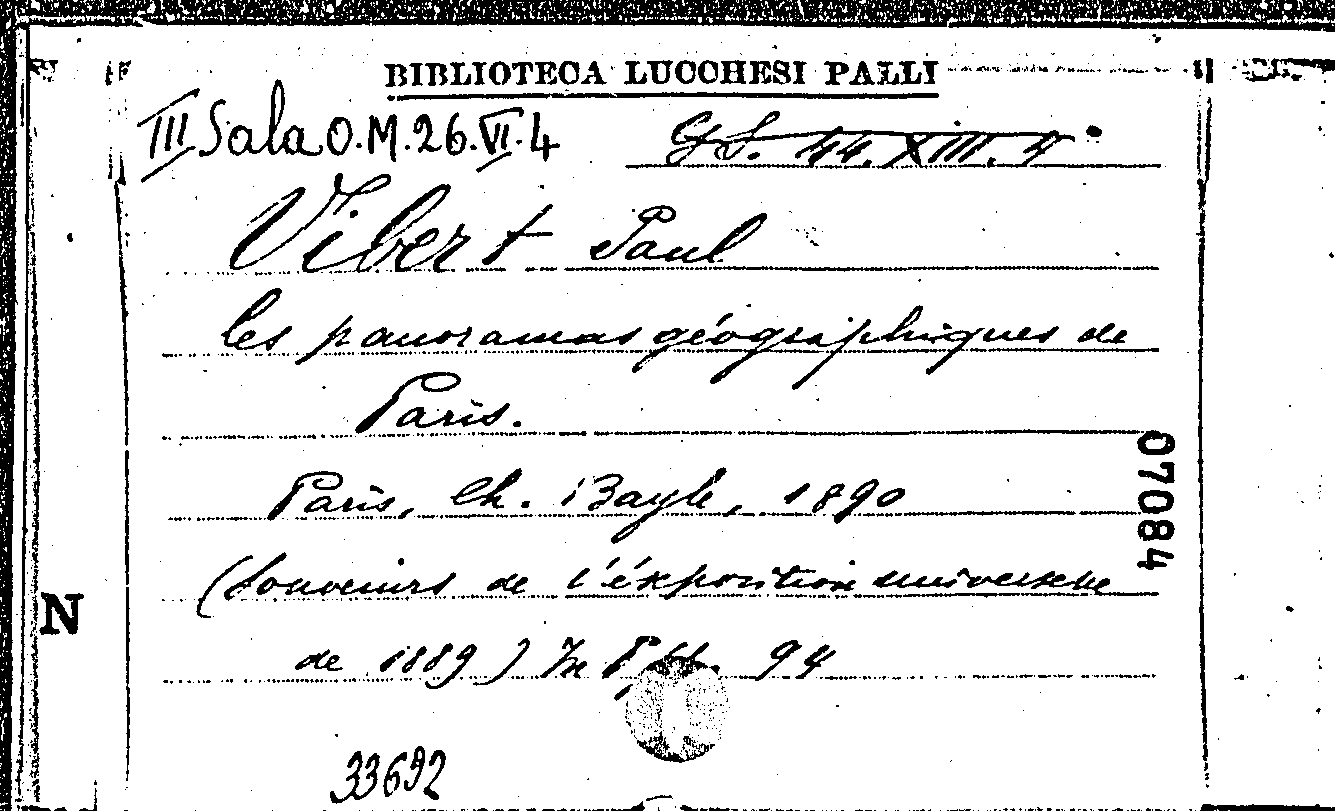 BIBLIOTECA LUCCHESI PALLI
III Sala O.M.26.VI.4 G.S. 44. XIII. 4
Vibert Paul
Les panoramas géographiques de
Paris.
Paris, Ch. Bayle, 1890
(Souvenirs de l'éxposition universelle
de 1889) In 8, 94
07084
N
33692